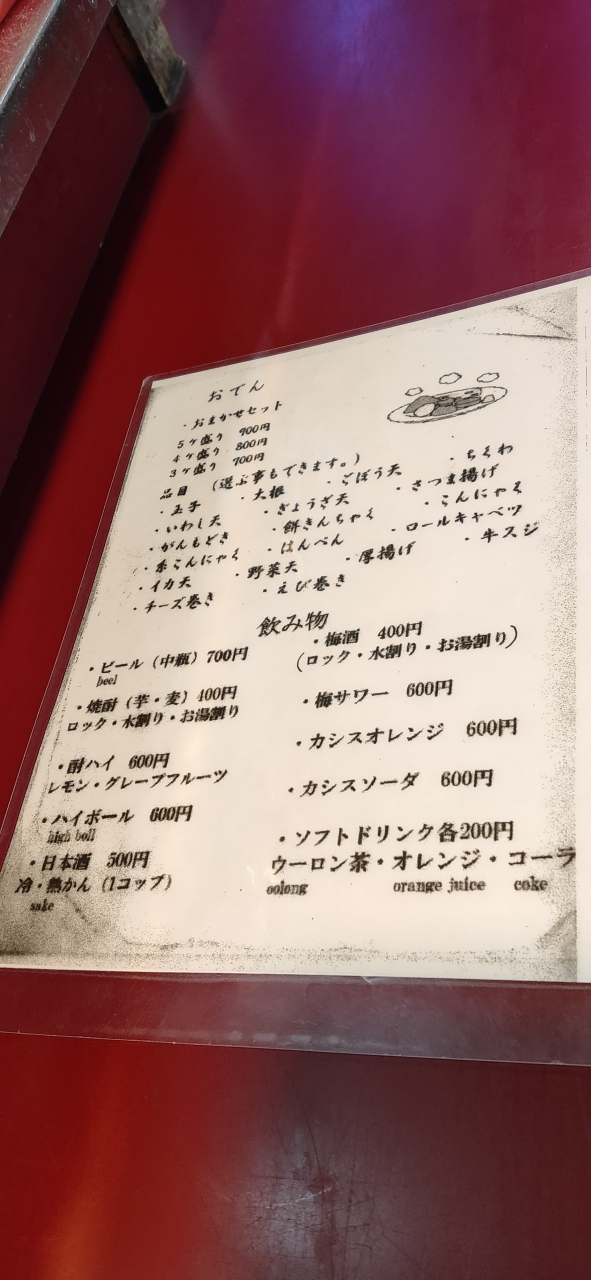 おでん
・おまかせセット
5ヶ盛り 900円
4ヶ盛り 800円
3ヶ盛り 700円
品目 (選ぶ事もできます。)
・玉子 ・大根 ・ごぼう天 ・ちくわ
・いわし天 ・ぎょうざ天 ・さつま揚げ
・がんもどき ・餅きんちゃく ・こんにゃく
・糸こんにゃく ・はんぺん ・ロールキャベツ
・イカ天 ・野菜天 ・厚揚げ ・牛スジ
・チーズ巻き ・えび巻き
飲み物
・ビール（中瓶）700円
beel
・焼酎（芋・麦）400円
ロック・水割り・お湯割り
・酎ハイ 600円
レモン・グレープフルーツ
・ハイボール 600円
high boll
・日本酒 500円
冷・熱かん（1コップ）
sake
・梅酒 400円
(ロック・水割り・お湯割り)
・梅サワー 600円
・カシスオレンジ 600円
・カシスソーダ 600円
・ソフトドリンク各200円
ウーロン茶・オレンジ・コーラ
oolong orange juice coke